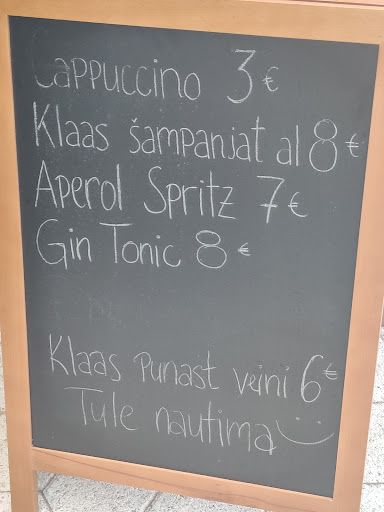 Cappuccino 3€
Klaas šampanjat al 8€
Aperol Spritz 7€
Gin Tonic 8€
Klaas punast veini 6€
Tule nautima